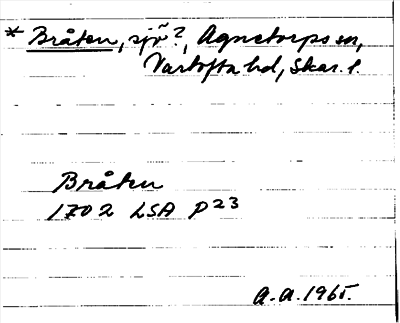 * Bråten, sjö?, Agnetorps sn,
Vartofta hd, Skar. l.
Bråten
1702 LSA P23
A.A. 1965.